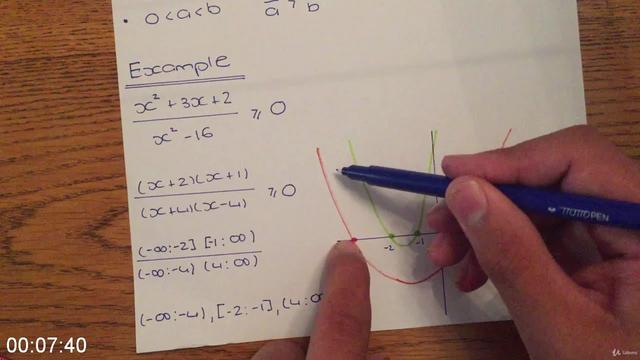 • 0<a<b   1/a > 1/b
Example
x² + 3x + 2
x² - 16
≥ 0
(x+2)(x+1)
(x+4)(x-4)
≥ 0
(-∞:-2] [-1:∞)
(-∞:-4) (4:∞)
(-∞:-4), [-2:-1], (4:∞
-2
-1
TUTTOPEN
00:07:40